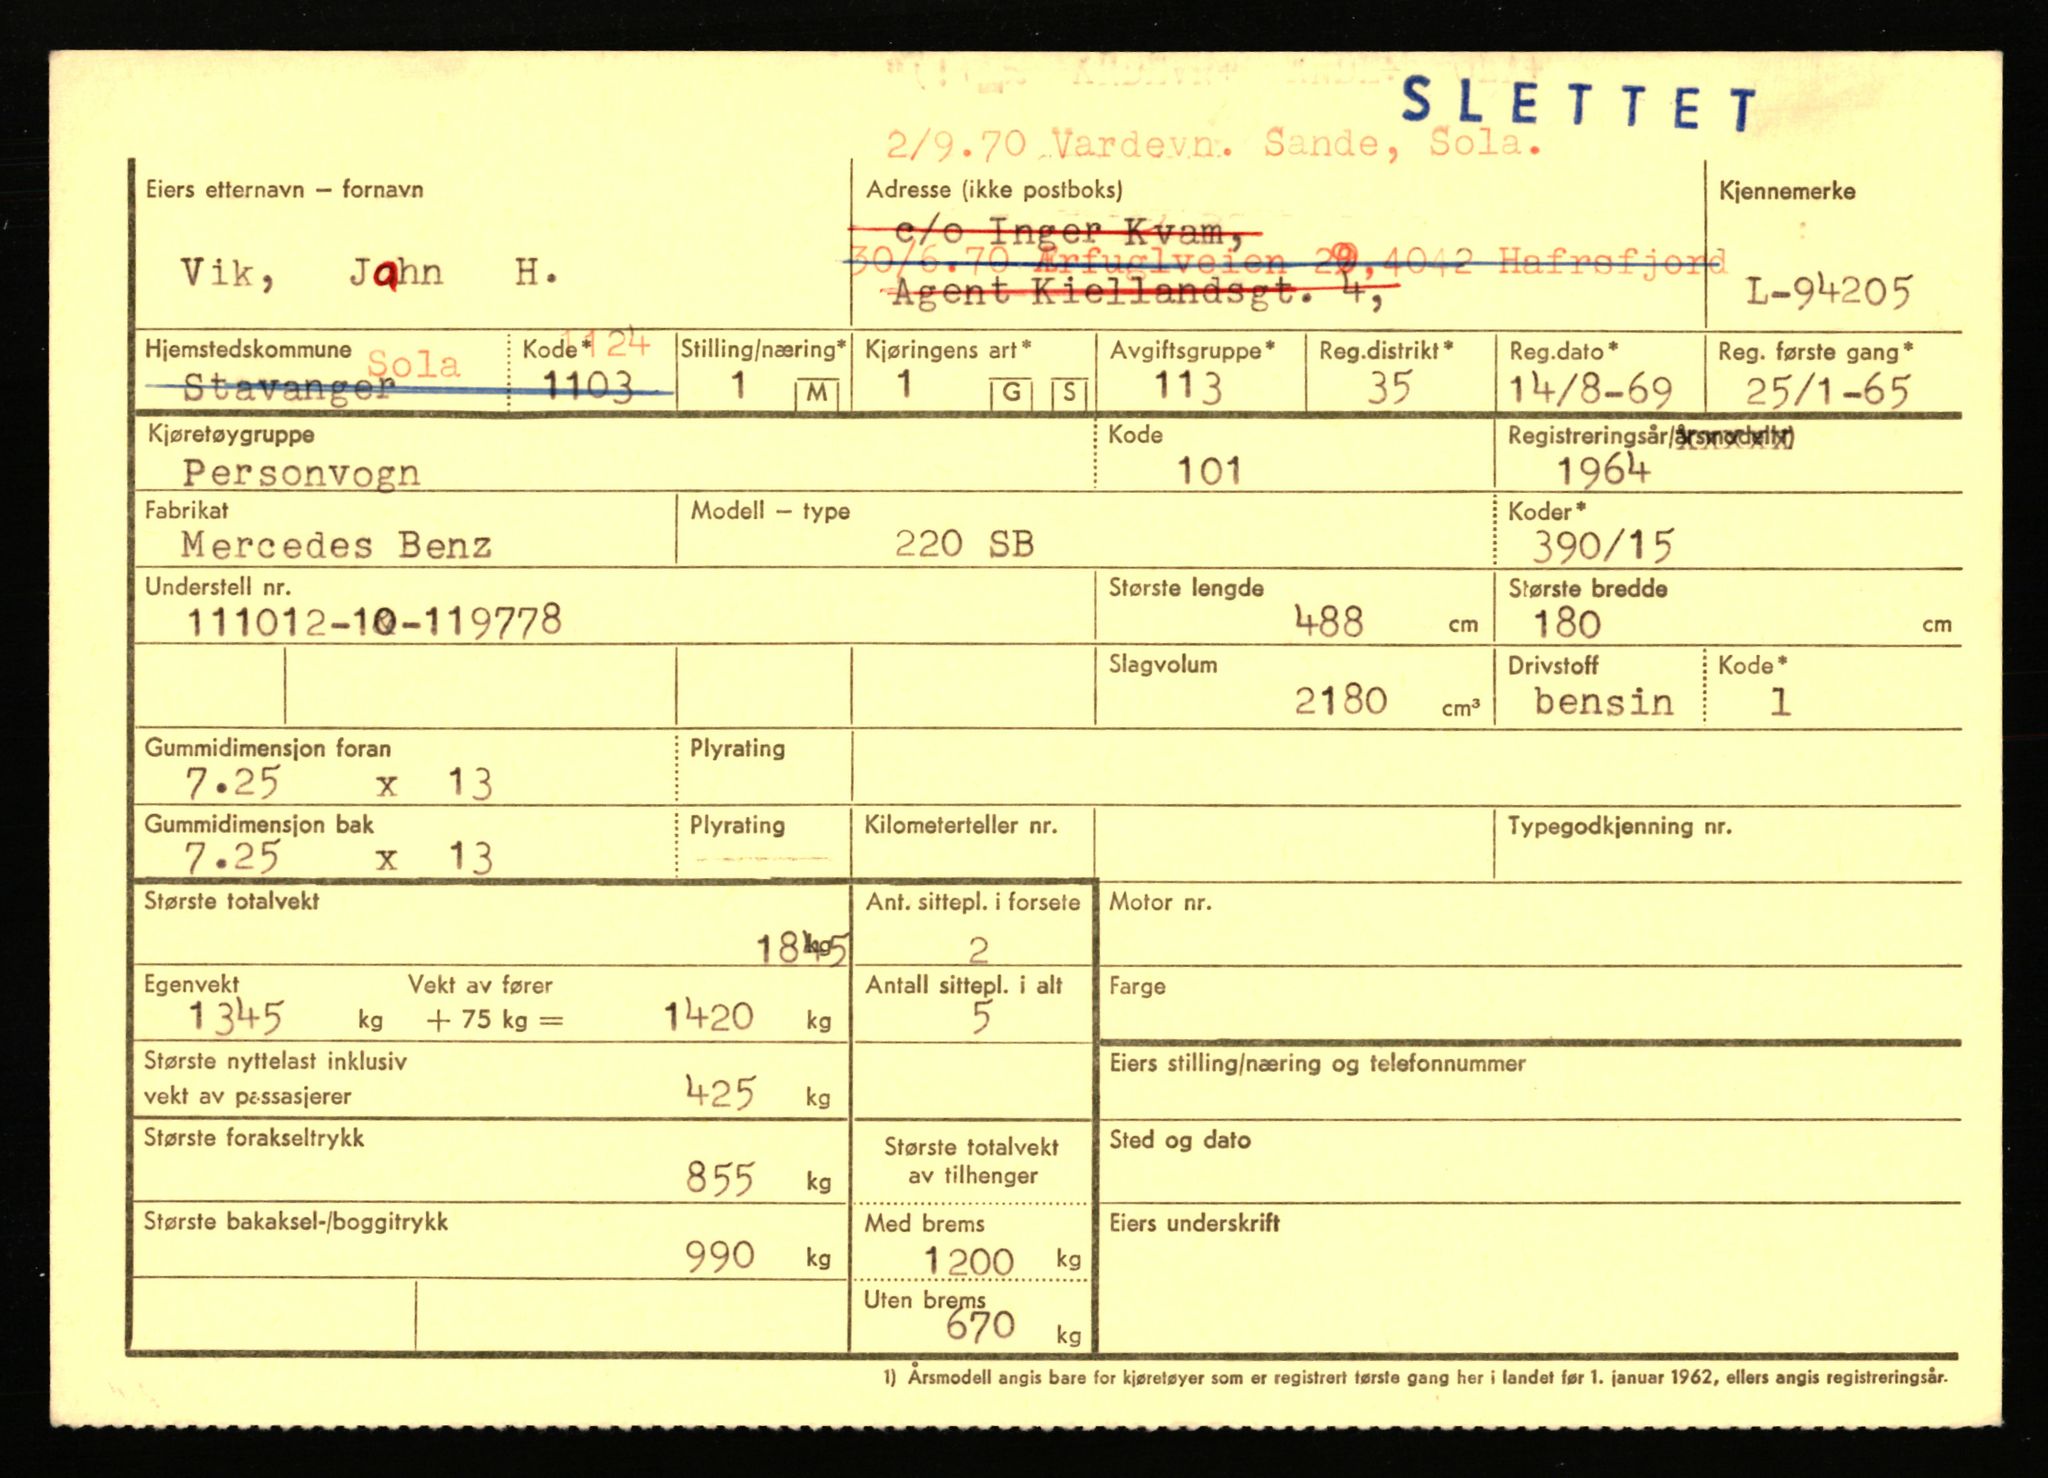 SLETTET
2/9.70 Vardevn. Sande, Sola.
Eiers etternavn – fornavn
Adresse (ikke postboks)
Kjennemerke
c/o Inger Kvam,
30/6.70 Ærfuglveien 29, 4042 Hafrsfjord
Vik, Jahn H.
Agent Kiellandsgt. 4,
L-94205
Hjemstedskommune
Kode* 1124
Stilling/næring*
Kjøringens art*
Avgiftsgruppe*
Reg.distrikt*
Reg.dato*
Reg. første gang*
Sola
Stavanger 1103 1 M 1 G S 113 35 14/8-69 25/1-65
Kjøretøygruppe
Kode
Registreringsår/årsmodell1)
Personvogn 101 1964
Fabrikat
Modell – type
Koder*
Mercedes Benz 220 SB 390/15
Understell nr.
Største lengde
Største bredde
111012-10-119778 488 cm 180 cm
Slagvolum
Drivstoff
Kode*
2180 cm³ bensin 1
Gummidimensjon foran
Plyrating
7.25 x 13
Gummidimensjon bak
Plyrating
Kilometerteller nr.
Typegodkjenning nr.
7.25 x 13
Største totalvekt
Ant. sittepl. i forsete
Motor nr.
1845 kg 2
Egenvekt
Vekt av fører
Antall sittepl. i alt
Farge
1345 kg + 75 kg = 1420 kg 5
Største nyttelast inklusiv
vekt av passasjerer 425 kg
Eiers stilling/næring og telefonnummer
Største forakseltrykk
855 kg
Største totalvekt
av tilhenger
Sted og dato
Største bakaksel-/boggitrykk
990 kg
Med brems
1200 kg
Eiers underskrift
Uten brems
670 kg
1) Årsmodell angis bare for kjøretøyer som er registrert første gang her i landet før 1. januar 1962, ellers angis registreringsår.